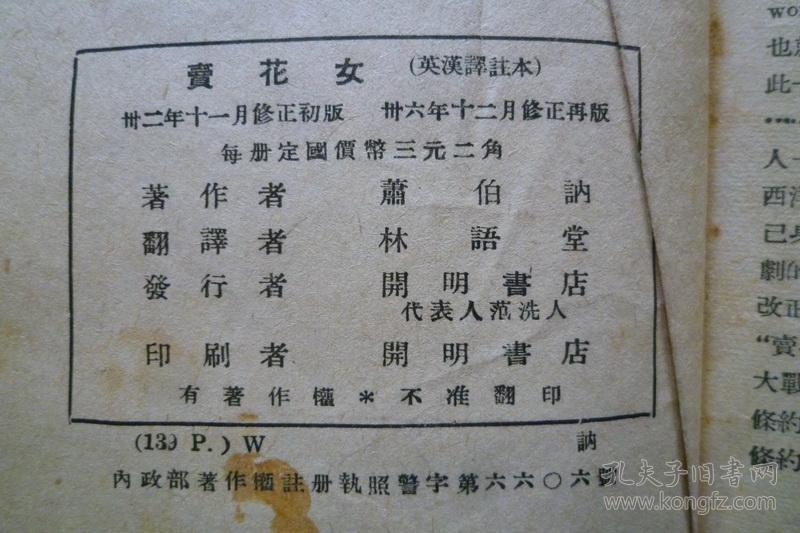 賣花女 (英漢譯註本)
卅二年十一月修正初版 卅六年十二月修正再版
每册定國價幣三元二角
著作者 蕭伯訥
翻譯者 林語堂
發行者 開明書店
代表人范洗人
印刷者 開明書店
有著作權＊不准翻印
(139 P.) W 訥
內政部著作權註册執照警字第六六〇六號
wo
也
此
人一
西
己
劇的
改正
“賣
大戰
條約
條約
孔夫子旧书网
www.kongfz.com